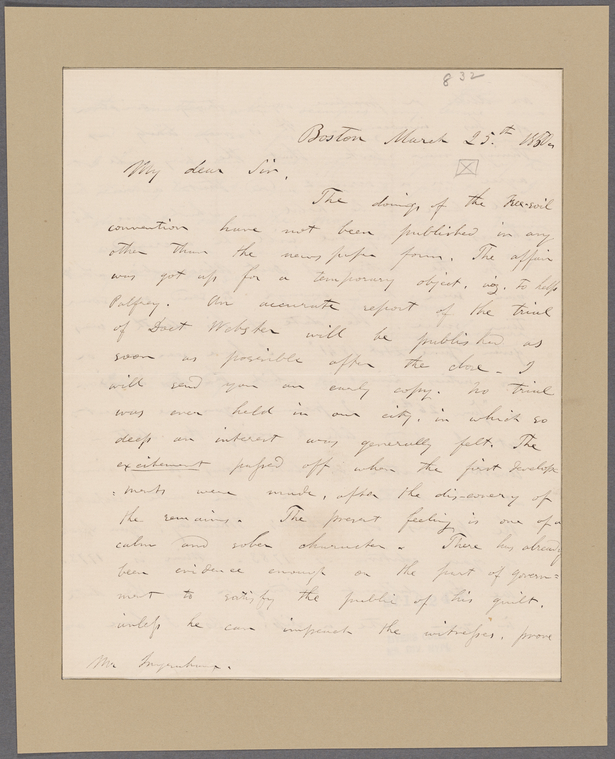 832
Boston March 25.th 1850.
My dear Sir,
The doings of the Free-soil
convention have not been published in any
other than the newspaper form. The affair
was got up for a temporary object, viz. to help
Palfrey. An accurate report of the trial
of Doct Webster will be published as
soon as possible after the close - I
will send you an early copy. No trial
was ever held in our city, in which so
deep an interest was generally felt. The
excitement passed off when the first develope
:ments were made, after the discovery of
the remains. The present feeling is one of a
calm and sober character. There has already
been evidence enough on the part of govern=
ment to satisfy the public of his guilt,
unless he can impeach the witnesses, prove
Mr